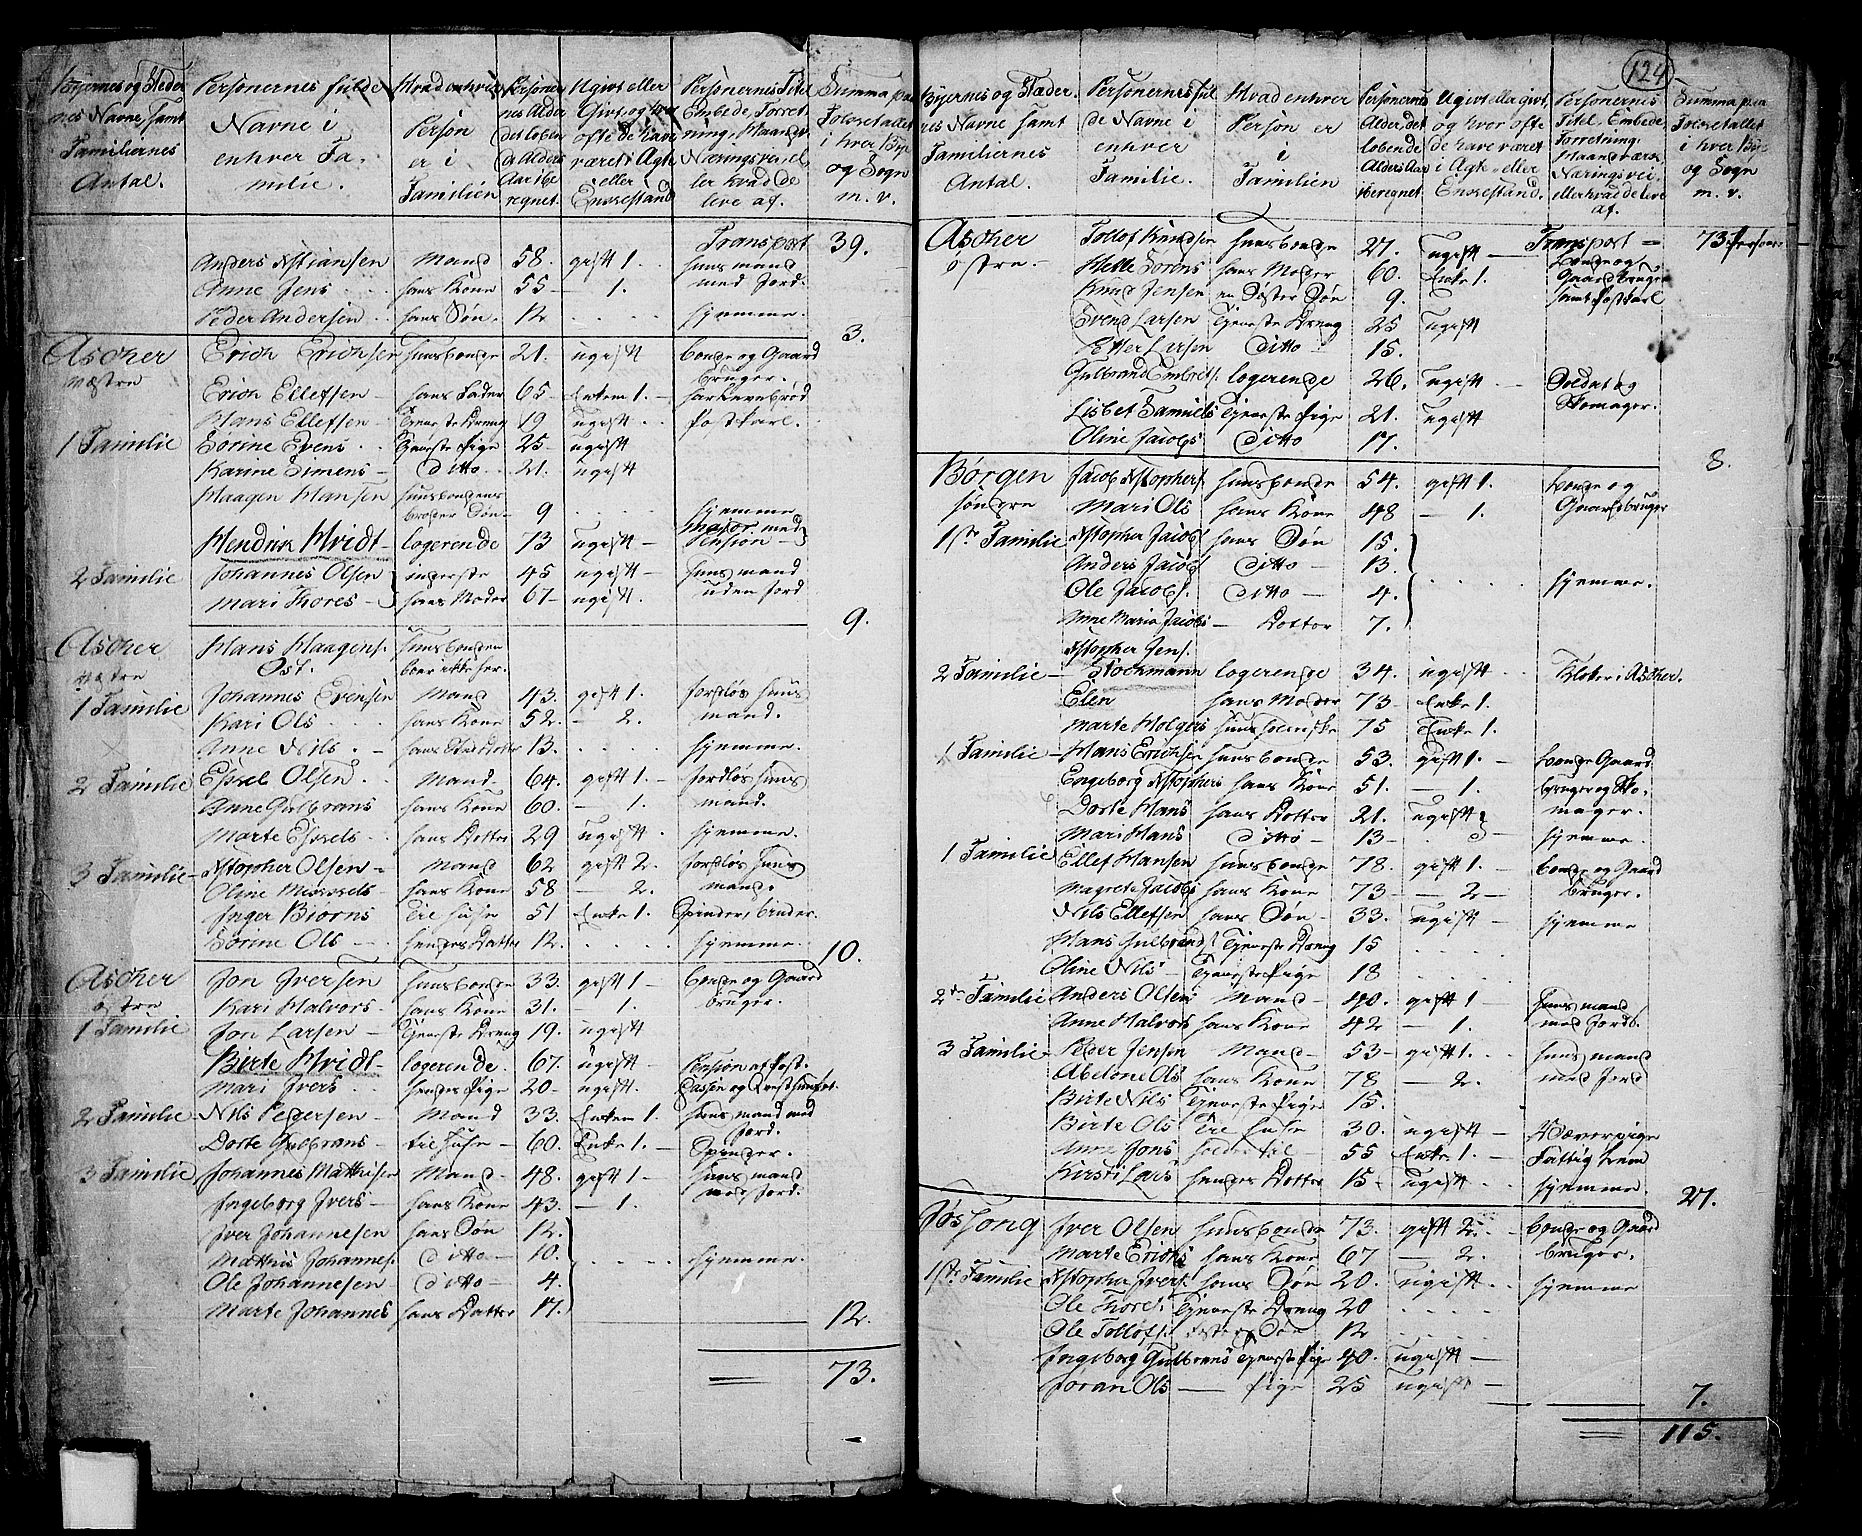 Byernes og Steder
nes Navne, samt
Familiernes
Antal.
Personernes fulde
Navne i
enhver Fa-
milie.
Hvad enhver
Person
er i
Familien
Personer
nes Alder
det løben
de Alders
Aar ibe
regnet
Ugivt eller
Givt, og hvor
ofte de have
været i Ægte
eller
Enkestand
Personernes Titel
Embede, Forret
ning, Haandv.
Næringsvei, el
ler hvad de
leve af.
Summa paa
Folketallet
i hver By
og Sogn
m. v.
Transport 39.
Anders Xstiansen Mand 58. gift 1. huusmand
Anne Jens hans Kone 55 - 1. med Jord.
Peder Andersen hans Søn. 12 hjemme.
3.
Ascher Erich Erichsen huusbonde 21. ugift bonde og Gaard
væstre bruger.
Erich Ellefsen hans Fader 65 - Enkem 1. har Kaarbrød
Hans Ellefsen Tjeneste Dreng 19 ugift Postkarl.
1 Familie Sorine Evens Tjeneste Pige 25 - ugift
Karine Simens - ditto 21. ugift
Haagen Hansen huusbondens
broder Søn - 9 hjemme
Hendrik Hvidt - logerende 73 ugift - Major med Pension -
2 Familie Johannes Olsen inderste 45 ugift - huusmand
Mari Thores - hans Moder 67 - ugift. uden Jord
9.
Ascher Hans Haagens. huusbonden
væstre Øst. boer ikke her.
1 Familie Johannes Evensen Mand 43. gift 1. jordløs huus
Kari Ols hans Kone 52. - 2. mand.
Anne Nils - hans Sted Dotter 13. hjemme.
2 Familie Eskel Olsen Mand 64. gift 1. - jordløs huus
Anne Gulbrans hans Kone 60. - 1. mand.
Marte Eskels hans Dotter 29 ugift hjemme.
3 Familie - Xstopher Olsen - Mand 62 gift 2. jordløs huus
Oline Mickels - hans Kone 58 - 2. mand.
Inger Biørns til huse 51 Enke 1. Spinder, binder.
Sorine Ols hendes Datter 12. hjemme.
10.
Ascher Jon Iversen huusbonde 33. gift 1 - bonde og Gaard
østre Kari Halvors hans Kone 31. 1. bruger.
1 Familie Jon Larsen - Tjeneste Dreng 19. ugift
Birte Hvidt - logerende. 67. ugift - Pension af Post
Mari Ivers hendes Pige 20 - ugift. Cassen og
2 Familie Nils Pedersen - Mand 33. Enkem 1. huusmand med
Jord.
Dorte Gulbrans til huse - 60. Enke 1. Spinder.
3 Familie Johannes Matthisen Mand - 48. gift 1 huusmand
Ingeborg Ivers - hans Kone 43. - 1. med Jord.
Iver Johannesen hans Søn 12.
Mathis Johannes. ditto - 10. hjemme.
Ole Johannesen - ditto - 4.
Marte Johannes hans Datter 17.
12.
73.
124
Byernes og Stæder.
nes Navne samt
Familiernes
Antal.
Personernes ful
de Navne i
enhver
Familie.
Hvad enhver
Person er
i
Familien
Personernes
Alder, det
løbende
Alders Aar
iberegnet
Ugivt eller givt,
og hvor ofte
de have været
i Ægte - eller
Enkestand.
Personernes
Titel, Embede,
Forretning,
Haandværk
Næringsvei
eller hvad de leve
af.
Summa paa
Folketallet
i hver By
og Sogn
m. v.
Transport = 73 Personer
Ascher Tollof Knudsen huusbonde 27. ugift - bonde og
østre - Helle Sorens hans Moder 60. Enke 1. Gaardbruger
Knud Jensen en Søster Søn 9. samt Postkarl
Svend Larsen Tjeneste Dreng 25 ugift
Petter Larsen ditto - 15.
Gulbrand Embrets. logerende 26. ugift - Soldat og
Skomager.
Lisbet Samuels Tjeneste Pige 21. ugift
Oline Jacobs ditto 17.
8.
Børgen Jacob Xstophers. huusbonde 54. gift 1. bonde og
søndre Mari Ols hans Kone 48 - 1. Gaardbruger
1ste Familie Xstopher Jacobs. hans Søn 15.
Anders Jacobs. ditto - 13.
Ole Jacobs. ditto - 4. hjemme.
Anne Maria Jacobs - Dotter 7.
Xstopher Jens.
2 Familie - Stockmann logerende 34. ugift Kloker i Ascher.
Elen hans Moder 73 - Enke 1.
Marte Holgers 75 Enke 1.
1 Familie - Hans Erichsen huusbonde 53. gift 1. bonde Gaard
Engeborg Xstophers hans Kone 51. - 1. bruger og Sko,
Dorte Hans hans Dotter 21. ugift mager.
Mari Hans ditto - 13 - hjemme.
1 Familie Ellef Hansen huusbonde - 78. gift 1. bonde og Gaard
Magrete Jacobs hans Kone 73 - - 2 - bruger.
Nils Ellefsen hans Søn - 33. ugift - hjemme
Hans Gulbrands. Tjeneste Dreng 15
Oline Nils - Tjeneste Pige 18
2den Familie Anders Olsen Mand - 40. gift 1 - huusmand
Anne Halvors hans Kone 42 - 1. med Jord.
3 Familie Peder Jensen Mand - 53 - gift 1. huusmand
Abelone Ols hans Kone 78 - 2. med Jord
Birte Nils Tjeneste Pige 15.
Birte Ols til huse 30. ugift - Væverpige
Anne Jons 55 Enke 1. - Fattig Lem
Kirsti Lars hendes Dotter 15 - ugift hjemme.
27.
Jøssong Iver Olsen huusbonde 73. gift 2. - bonde og Gaard
Marte Erichs hans Kone 67 - 2. bruger.
1ste Familie Xstopher Ivers. hans Søn 20. ugift hjemme
Ole Thores. Tjeneste Dreng 20
Ole Tollofs. Søn 12
Ingeborg Gulbrans Tjeneste Pige 40. ugift -
Joran Ols - Pige 25 ugift -
7.
115.